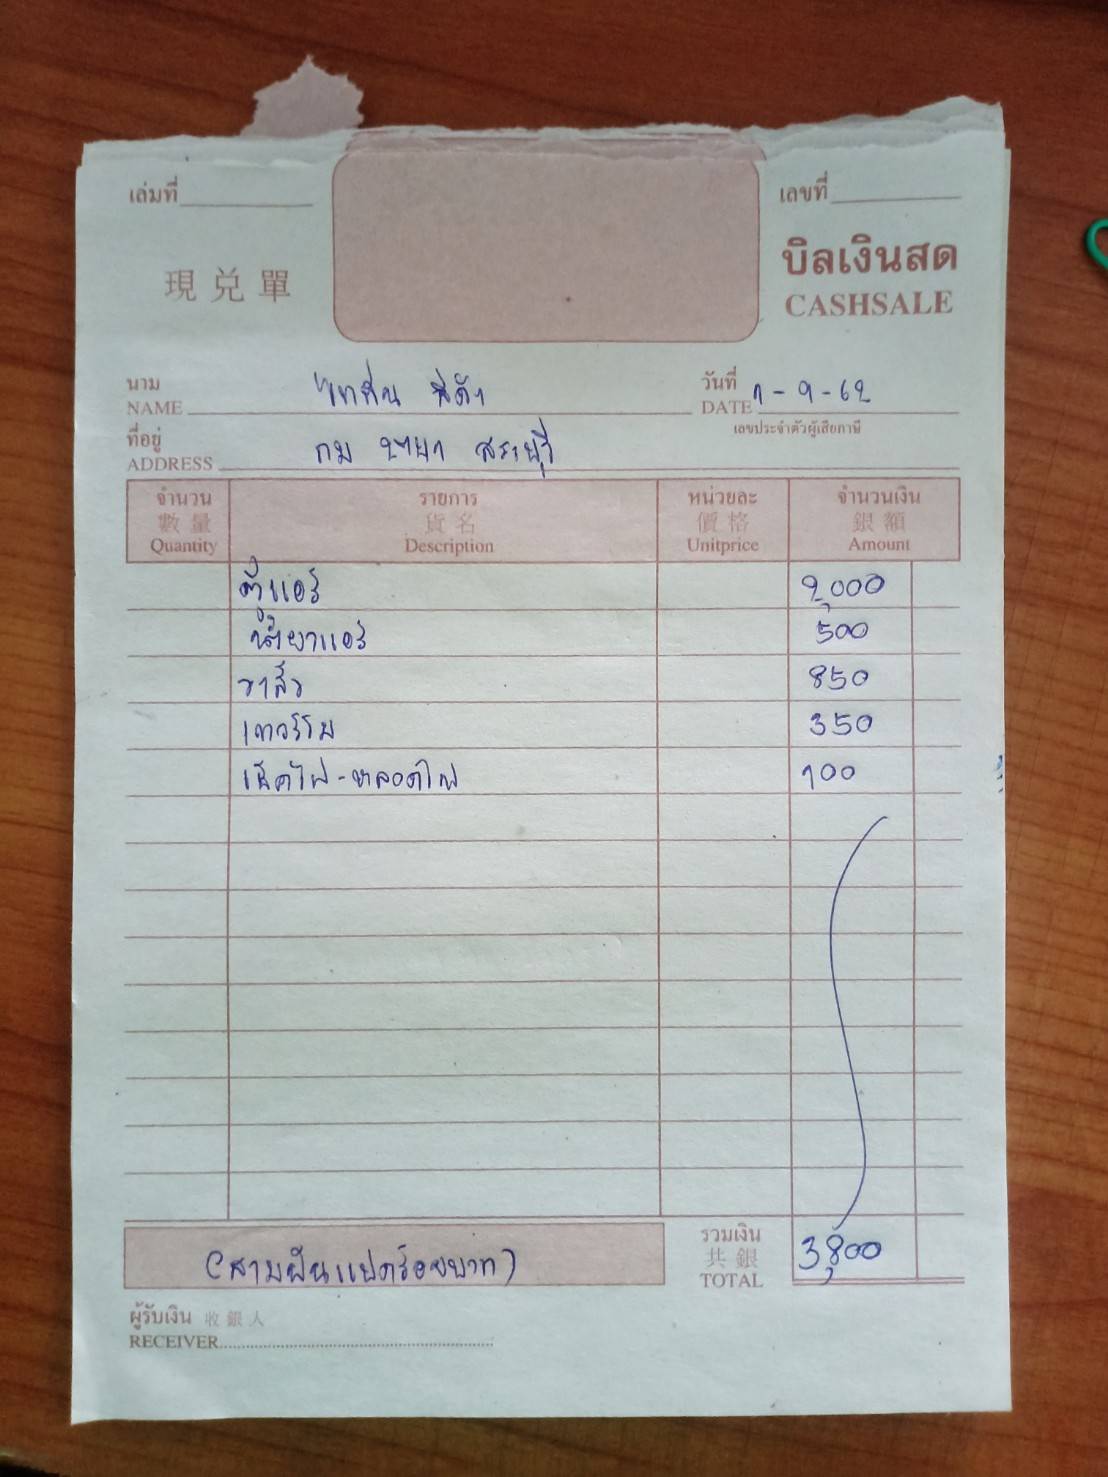 เล่มที่
เลขที่
現兑單
บิลเงินสด
CASHSALE
นาม
NAME
วันที่
DATE 1-9-62
เลขประจำตัวผู้เสียภาษี
ที่อยู่
ADDRESS
กม สระบุรี
จำนวน รายการ หน่วยละ จำนวนเงิน
數量 貨名 價格 銀額
Quantity Description Unitprice Amount
ตู้แอร์ 2,000
น้ำยาแอร์ 500
วาล์ว 850
เทอร์โม 350
เช็คไฟ-หลอดไฟ 100
รวมเงิน
共銀
TOTAL
(สามพันแปดร้อยบาท) 3,800
ผู้รับเงิน 收銀人
RECEIVER